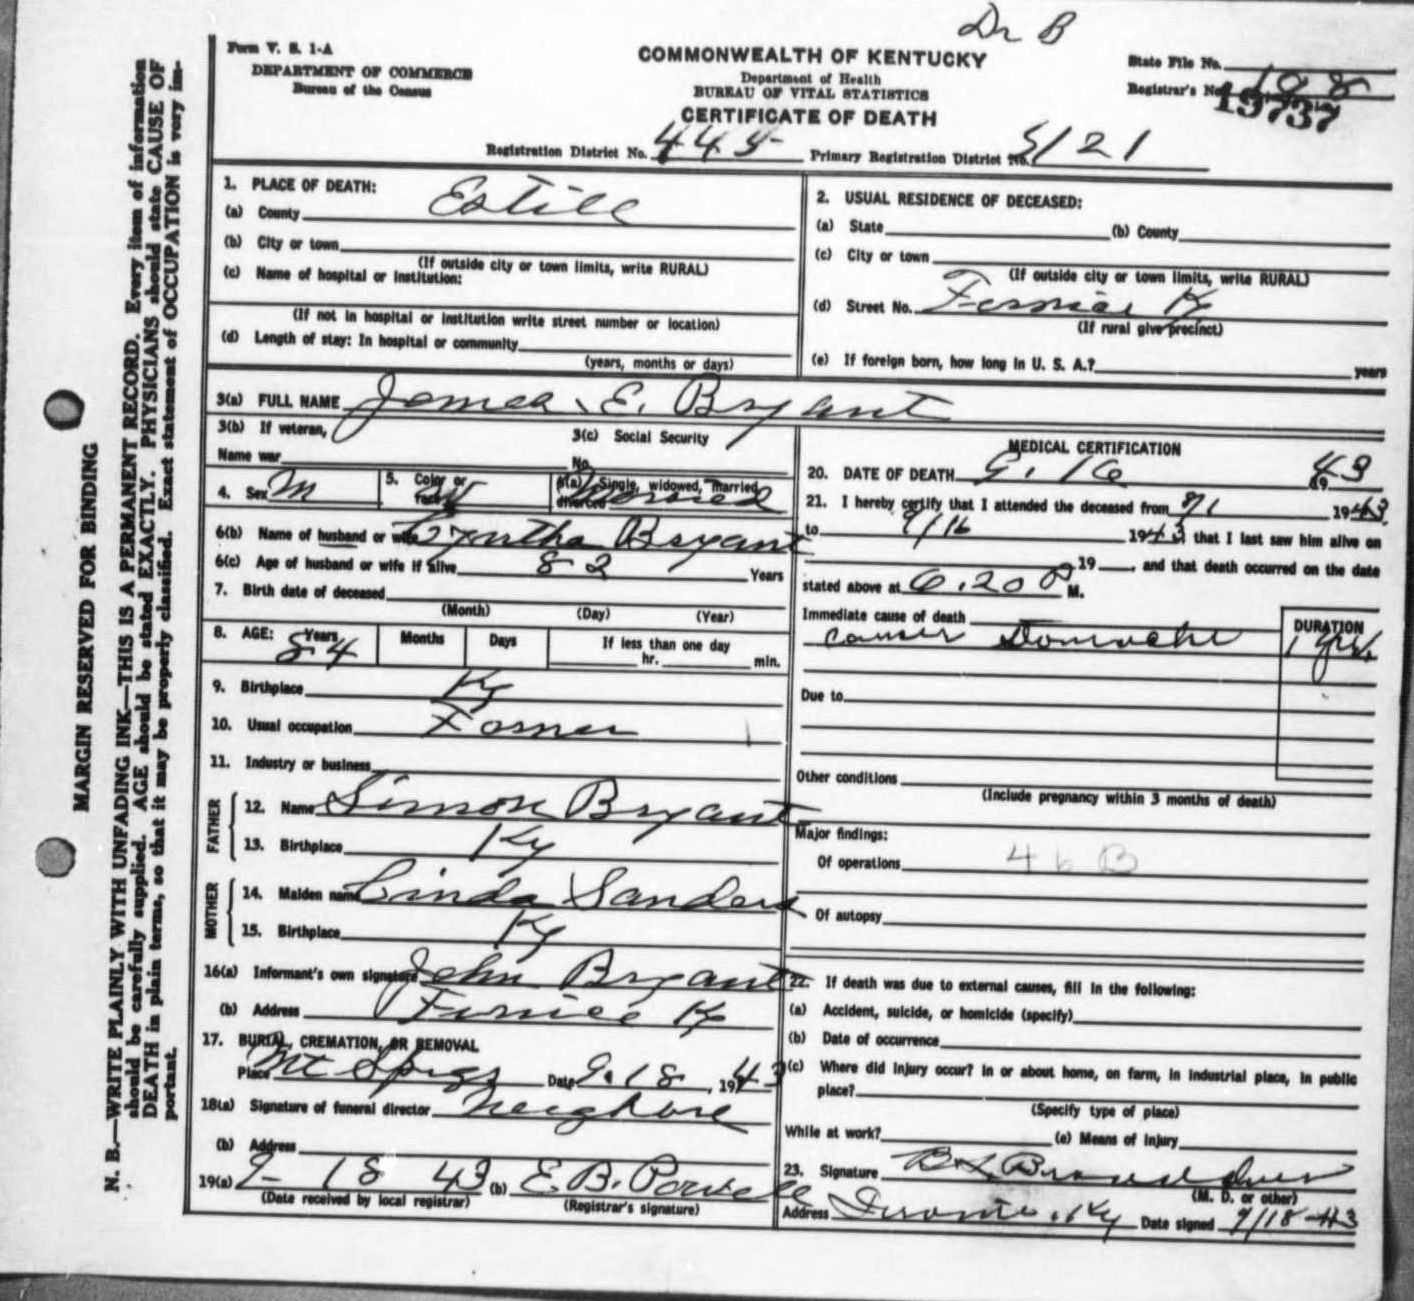 Dr B
Form V. S. 1-A
DEPARTMENT OF COMMERCE
Bureau of the Census
COMMONWEALTH OF KENTUCKY
Department of Health
BUREAU OF VITAL STATISTICS
CERTIFICATE OF DEATH
State File No.
Registrar's No. 108
19737
Registration District No. 445 Primary Registration District No. 5121
MARGIN RESERVED FOR BINDING
N. B.—WRITE PLAINLY WITH UNFADING INK—THIS IS A PERMANENT RECORD. Every item of information
should be carefully supplied. AGE should be stated EXACTLY. PHYSICIANS should state CAUSE OF
DEATH in plain terms, so that it may be properly classified. Exact statement of OCCUPATION is very im-
portant.
1. PLACE OF DEATH:
(a) County Estill
(b) City or town
(If outside city or town limits, write RURAL)
(c) Name of hospital or institution:
(If not in hospital or institution write street number or location)
(d) Length of stay: In hospital or community
(years, months or days)
2. USUAL RESIDENCE OF DECEASED:
(a) State (b) County
(c) City or town
(If outside city or town limits, write RURAL)
(d) Street No. Ky
(If rural give precinct)
(e) If foreign born, how long in U. S. A.? years
3(a) FULL NAME James E. Bryant
3(b) If veteran,
Name war
3(c) Social Security
No.
4. Sex M
5. Color or race W
6(a) Single, widowed, married, divorced Married
6(b) Name of husband or wife Bryant
6(c) Age of husband or wife if alive 82 Years
7. Birth date of deceased
(Month) (Day) (Year)
8. AGE: Years 84 Months Days If less than one day
hr. min.
9. Birthplace Ky
10. Usual occupation Farmer
11. Industry or business
FATHER
12. Name Simon Bryant
13. Birthplace Ky
MOTHER
14. Maiden name Linda Sanders
15. Birthplace Ky
16(a) Informant's own signature John Bryant
(b) Address Ky
17. BURIAL, CREMATION, OR REMOVAL
Place Mt Springs Date 9.18, 1943
18(a) Signature of funeral director
(b) Address
19(a) 9-18 43 (b) E B. Powell
(Date received by local registrar) (Registrar's signature)
MEDICAL CERTIFICATION
20. DATE OF DEATH 9. 16 1943
21. I hereby certify that I attended the deceased from 9/1 1943
to 9/16 1943 that I last saw him alive on
19 , and that death occurred on the date
stated above at 6.20 P M.
Immediate cause of death
cancer Stomache
DURATION
1 yr.
Due to
Other conditions
(Include pregnancy within 3 months of death)
Major findings:
Of operations 46 B
Of autopsy
22. If death was due to external causes, fill in the following:
(a) Accident, suicide, or homicide (specify)
(b) Date of occurrence
(c) Where did injury occur? In or about home, on farm, in industrial place, in public
place?
(Specify type of place)
While at work? (e) Means of injury
23. Signature
(M. D. or other)
Address Ky Date signed 9/18-43